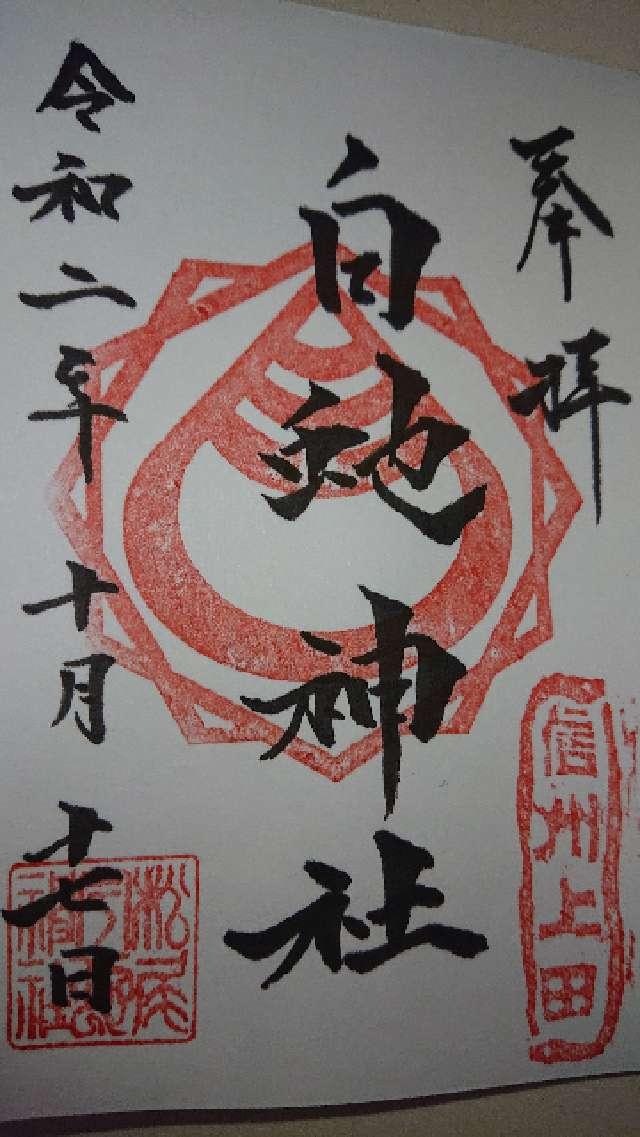 奉拝
信州上田
白蛇神社
令和二年十月十七日